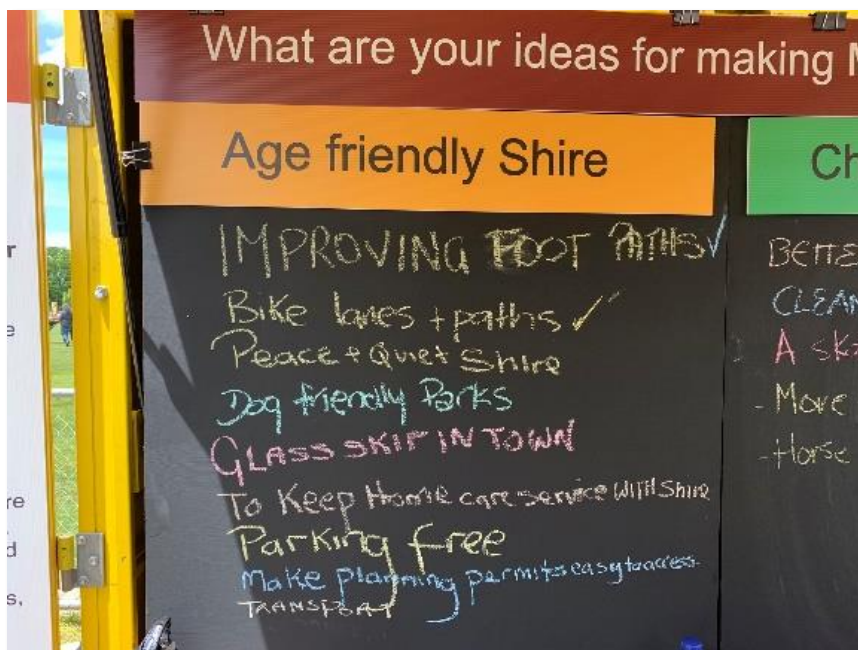 What are your ideas for making
Age friendly Shire
IMPROVING FOOT PATHS ✓
Bike lanes + paths ✓
Peace + Quiet Shire
Dog friendly Parks
GLASS SKIP IN TOWN
To Keep Home care service WITH Shire
Parking free
Make planning permits easy to access
TRANSPORT
Ch
BETTE
CLEAN
A SK
- Move
- Horse
re
d
s,